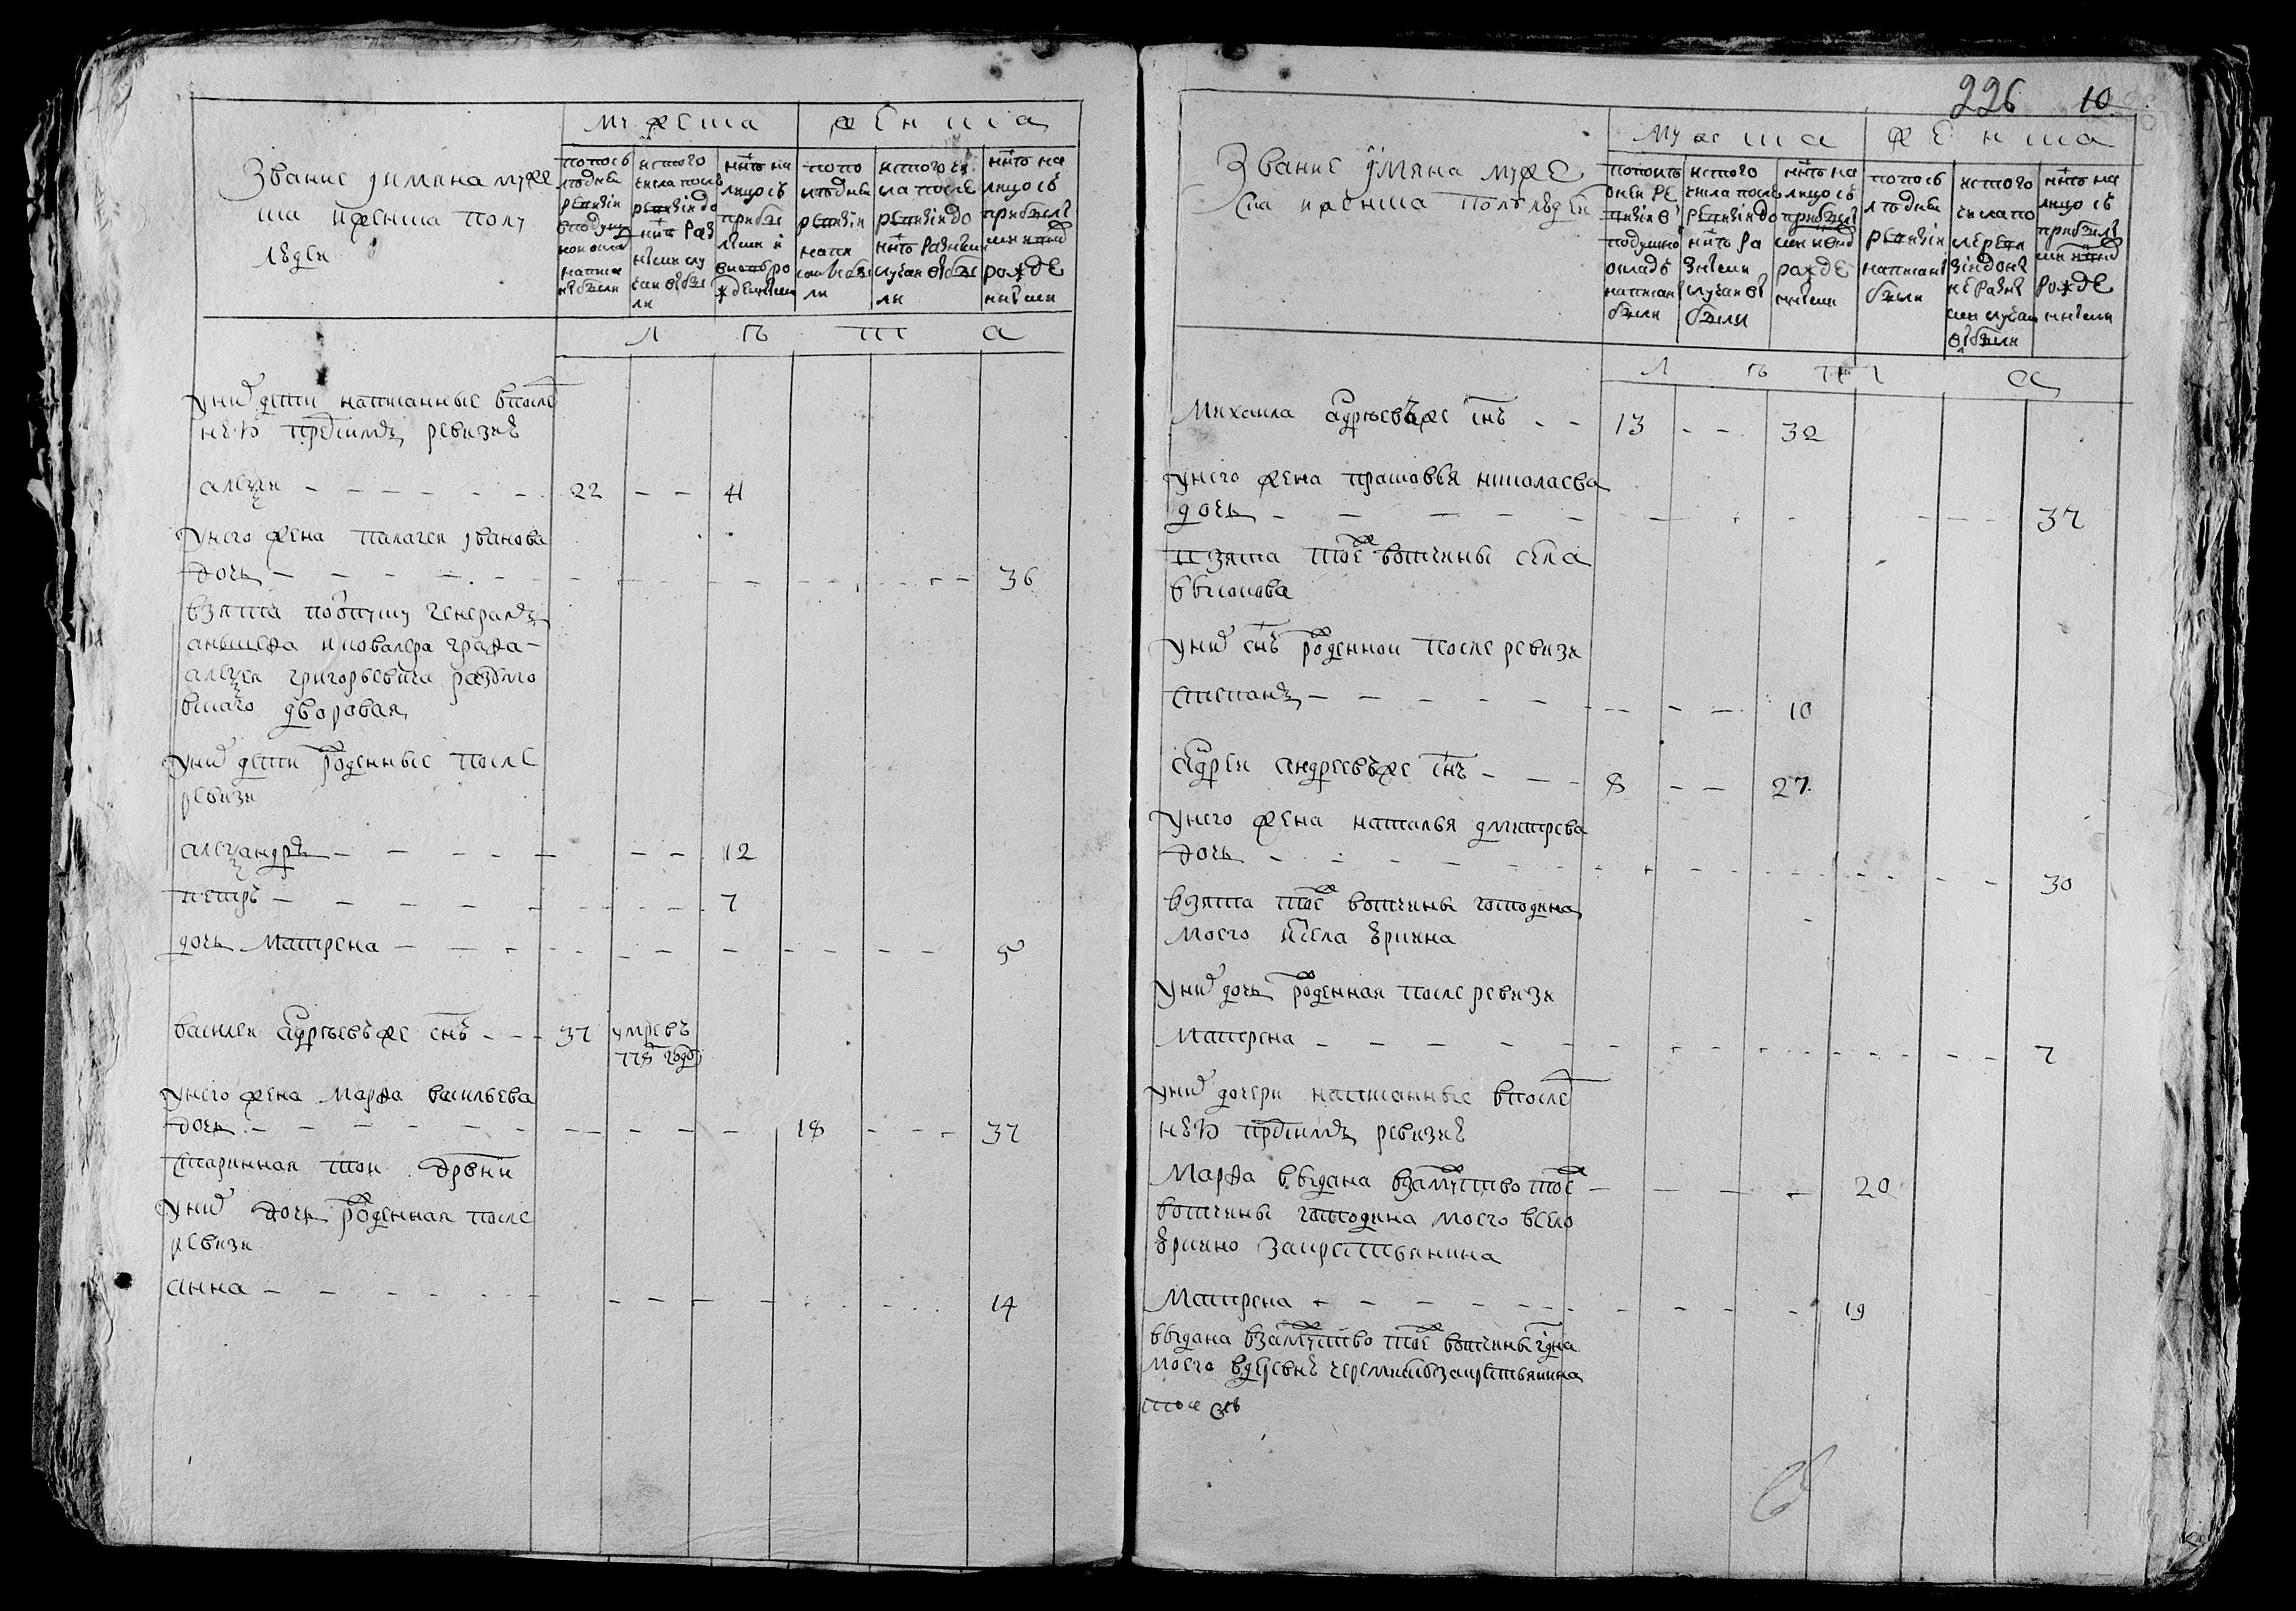 Звание и имена муже
ска и женска полу
людеи
мужеска
женска
попосъ
лѣдней
ревизіи
вподуш
ном окла
написа
ны были
исчего
числа послѣ
ревизіи до
ннѣ раз
ными слу
чаи выбы
ли
ннѣ на
лицо съ
прибы
лыми и
вновь ро
жденными
попо
слѣдней
ревизіи
напи
саны бы
ли
исчего чи
сла после
ревизіи до
ннѣ разными
случаи выбы
ли
ннѣ на
лицо съ
прибылы
ми
рожде
ными
л ѣ т а
у них дети написанные впослед
неи пред сим ревизиі
алексеи 22 41
у него жена палагея иванова
дочь 36
взята по отпуску генерала
аншефа и ковалера графа
алексея григорьевича разумо
вскаго дворовая
у них дети рожденные после
ревизи
александръ 12
петръ 7
дочь матрена 5
василеи андреевъ же снъ 37 умре въ
году
у него жена марфа васильева
дочь 18 37
старинная тои дрвни
у них дочь рожденная после
ревизи
анна 14
226 10
Звание и имяна муже
ска и женска полу людеи
мужеска
женска
попослѣ
днеи ре
визіи в
подушно
окладѣ
написан
были
исчего
числа после
ревизіи до
ннѣ ра
зными
случаи вы
были
ннѣ на
лицо съ
прибылы
ми
рожде
ными
попосъ
лѣдней
ревизіи
написаны
были
исчего
числа по
сле реви
зіи до ны
не разны
ми случаи
выбыли
ннѣ на
лицо съ
прибылы
ми
рожде
нными
л ѣ т а
Михаила андреевъ же снъ 13 32
у него жена прасковья николаева
дочь 37
взята тоеж вотчины села
у них снъ рожденнои после ревизи
степанъ 10
андреи андреевъ же снъ 8 27
у него жена наталья дмитрева
дочь 30
взята тоеж вотчины господина
моего села
у них дочь рожденная после ревизи
матрена 7
у них дочери написанные впослед
неи пред сим ревизиі
Марфа выдана взамужство тоеж 20
вотчины господина моего всело
закрестьянина
Матрена 19
выдана взамужство тоеж вотчины гдна
моего вдеревнѣ закрестьянина